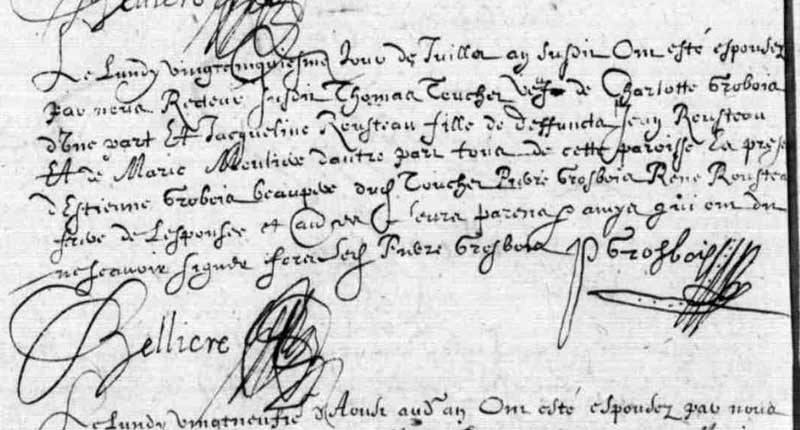 Belliere
Le Lundy vingtcinquiesme Jour de Juillet an susdit Ont esté espousez
par nous Recteur susdit Thomas Toucher vef de Charlotte Grobois
d'une part Et Jacqueline Rousteau fille de deffuncts Jean Rousteau
Et de Marie Moulive d'autre part tous de cette paroisse la presence
d'Estienne Grobois beaupere dud Toucher Pierre Grosbois René Rousteau
frere de Lespousee et aultres leurs parens & amys qui ont dit
ne scavoir signer fors led Pierre Grosbois P Grosbois
Belliere
Le Lundy vingtneufie d'Aoust aud an Ont esté espousez par nous